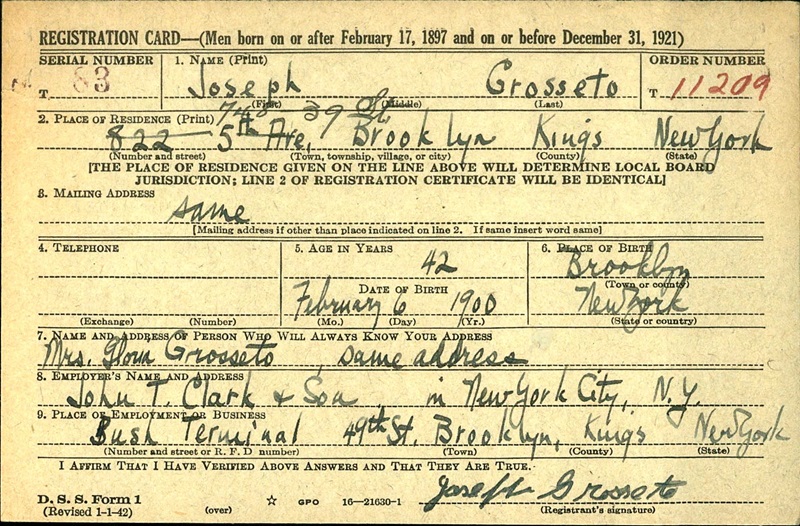 REGISTRATION CARD—(Men born on or after February 17, 1897 and on or before December 31, 1921)
SERIAL NUMBER 1. NAME (Print) ORDER NUMBER
T 83 Joseph Grosseto T 11209
(First) (Middle) (Last)
39 St.
2. PLACE OF RESIDENCE (Print)
822 5th Ave, Brooklyn Kings New York
(Number and street) (Town, township, village, or city) (County) (State)
[THE PLACE OF RESIDENCE GIVEN ON THE LINE ABOVE WILL DETERMINE LOCAL BOARD
JURISDICTION; LINE 2 OF REGISTRATION CERTIFICATE WILL BE IDENTICAL]
3. MAILING ADDRESS
same
[Mailing address if other than place indicated on line 2. If same insert word same]
4. TELEPHONE 5. AGE IN YEARS 6. PLACE OF BIRTH
42 Brooklyn
DATE OF BIRTH (Town or county)
February 6 1900 New York
(Exchange) (Number) (Mo.) (Day) (Yr.) (State or country)
7. NAME AND ADDRESS OF PERSON WHO WILL ALWAYS KNOW YOUR ADDRESS
Mrs. Grosseto, same address
8. EMPLOYER'S NAME AND ADDRESS
John T. Clark & Son, in New York City, N.Y.
9. PLACE OF EMPLOYMENT OR BUSINESS
Bush Terminal 49th St. Brooklyn, Kings New York
(Number and street or R. F. D number) (Town) (County) (State)
I AFFIRM THAT I HAVE VERIFIED ABOVE ANSWERS AND THAT THEY ARE TRUE.
D. S. S. Form 1
(Revised 1-1-42) (over) ☆ GPO 16—21630-1 Joseph Grosseto
(Registrant's signature)